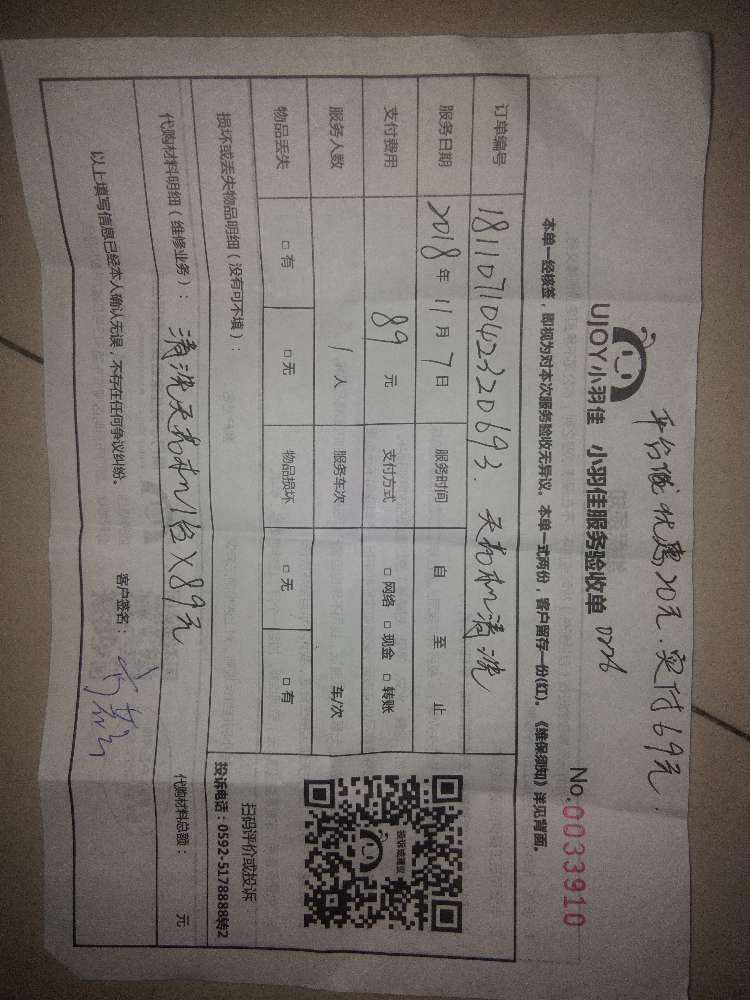 平台减优惠20元.实付69元.
UJOY小羽佳 小羽佳服务验收单 0226
No.0033910
本单一经核签，即视为对本次服务验收无异议。本单一式两份，客户留存一份(红)。《维保须知》详见背面。
订单编号 1811071042320693. 天花机清洗
服务日期 2018年11月7日 服务时间 自 至 止
支付费用 89元 支付方式 □网络 □现金 □转账
服务人数 1人 服务车次 车/次
物品丢失 □有 □无 物品损坏 □无 □有
投诉或建议
扫码评价或投诉
投诉电话：0592-5178888转2
损坏或丢失物品明细（没有可不填）：
代购材料明细（维修业务）： 清洗天花机1台×89元 代购材料总额： 元
以上填写信息已经本人确认无误，不存在任何争议纠纷。 客户签名：